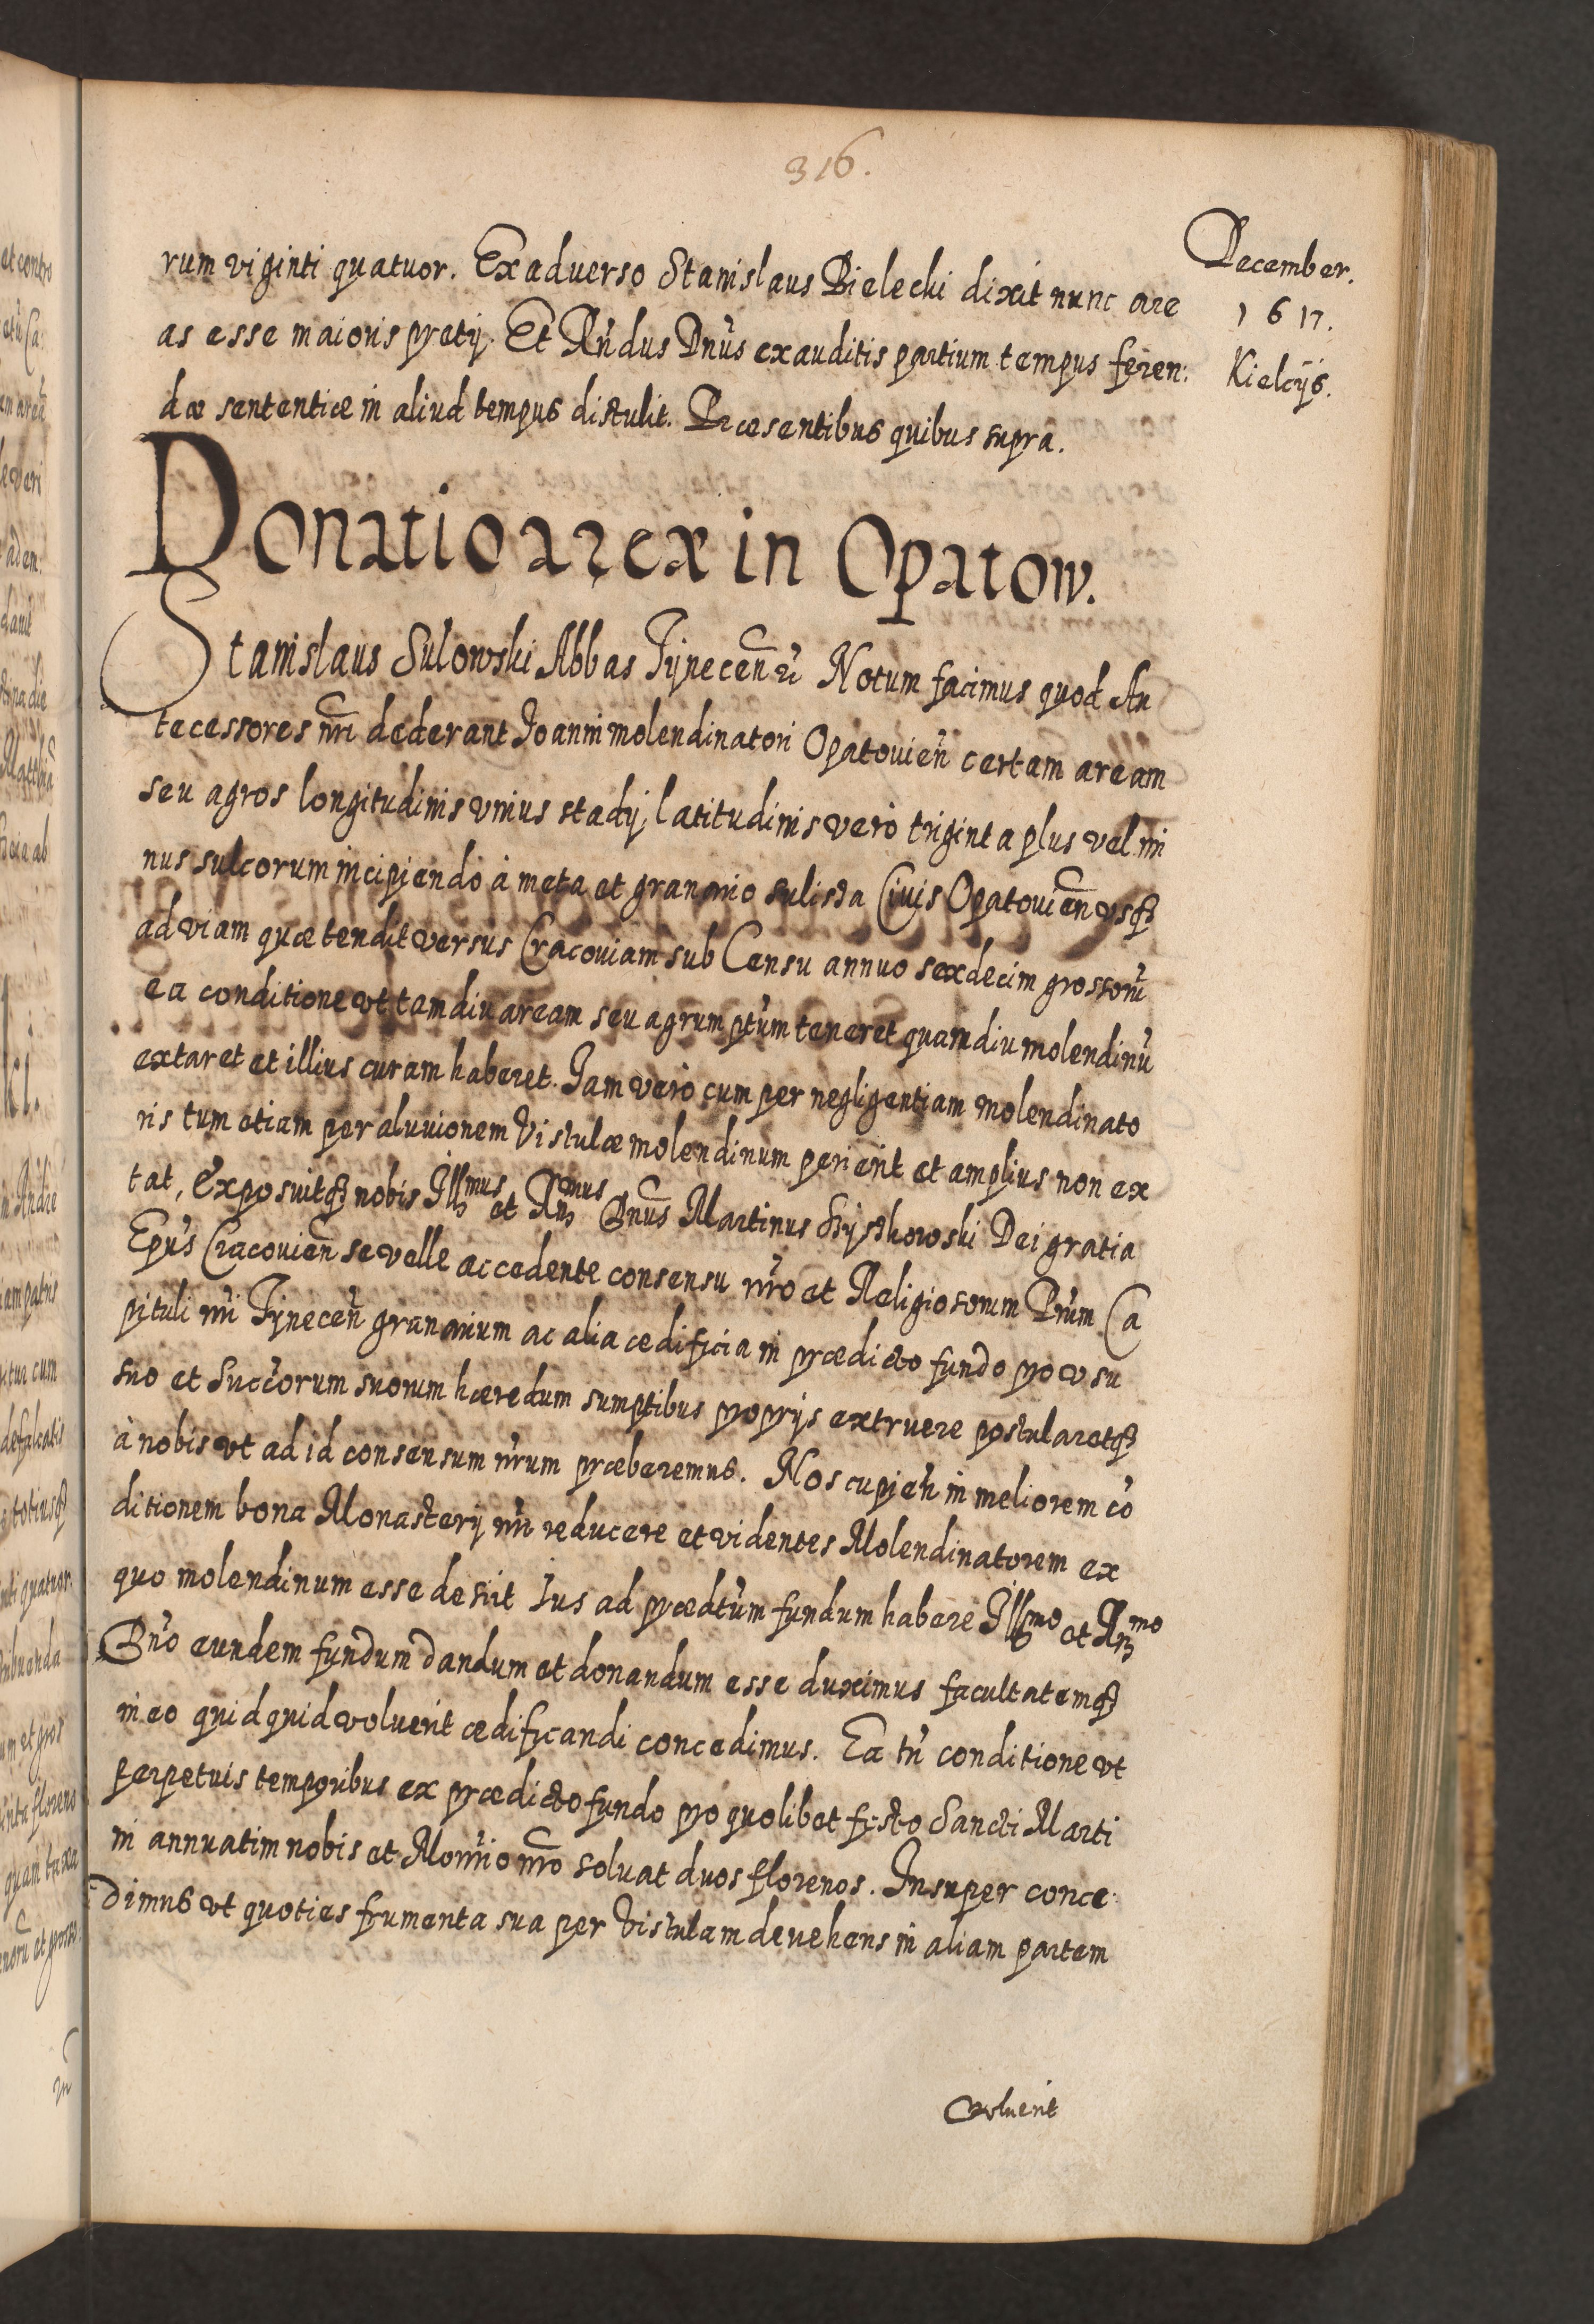 316.
December.
1617.
Kielcijs.
rum viginti quatuor. Ex aduerso Stanislaus Bielecki dixit nunc are
as esse maioris pretij. Et Rńdus Dnús exauditis partium tempus feren:
dæ sententiæ in aliud tempus distulit. Præsentibus quibus supra.
Donatio areæ in Opatow.
Stanislaus Sulowski Abbas Tynecen̄ Notum facimus quod An
tecessores nr̄i dederant Joanni molendinatori Opatouien̄ certam aream
seu agros longitudinis vnius stadij, latitudinis verò triginta plus vel mi
nus sulcorum incipiendo à meta et granario Sulista Ciuis Opatouien̄ vsqȝ
ad viam quæ tendit versus Cracouiam sub Censu annuo sexdecim grossorū
ea conditione vt tamdiu aream seu agrum ptūm teneret quamdiu molendinū
extaret et illius curam haberet. Jam verò cum per negligentiam molendinato
ris tum etiam per aluuionem Vistulæ molendinum perierit et amplius non ex
tat, exposuitqȝ nobis Illmus et Rmus Dnūs Martinus Szyszkowski Dei gratia
Epūs Cracouien̄ se velle accedente consensu nr̄o et Religiosorum Prūm Ca
pituli nr̄i Tynecen̄ granarium ac alia ædificia in prædicto fundo pro vsu
suo et Succorum suorum hæredum sumptibus proprijs extruere postularetqȝ
à nobis vt ad id consensum nr̄um præberemus. Nos cupien̄ in meliorem cō
ditionem bona Monasterij nr̄i reducere et videntes Molendinatorem ex
quo molendinum esse desiit Jus ad prædtūm fundum habere Illmo et Rmo
Dnō eundem fundum dandum et donandum esse duximus facultatemqȝ
in eo quidquid voluerit ædificandi concedimus. Ea tn̄ conditione vt
perpetuis temporibus ex prædicto fundo pro quolibet festo Sancti Marti
ni annuatim nobis et Mon̄rio nr̄o soluat duos florenos. Insuper conce:
dimus vt quoties frumenta sua per Vistulam deuehens in aliam partem
voluerit